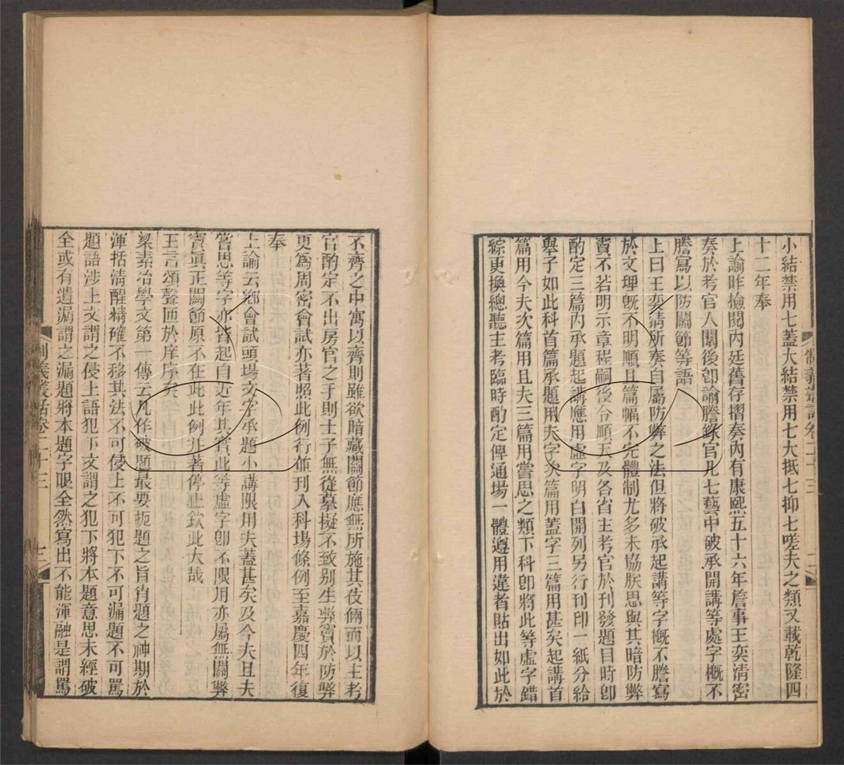 小結禁用七蓋大結禁用七大抵七抑七嗟夫之類又載乾隆四
十二年奉
上諭昨檢閱內廷舊存摺奏內有康熙五十六年詹事王奕清密
奏於考官入闈後卽諭謄錄官凡七藝中破承開講等處字概不
謄寫以防關節等語
上曰王奕清所奏自屬防弊之法但將破承起講等字概不謄寫
於文理旣不明順且篇幅不完體制尤多未協朕思與其暗防弊
竇不若明示章程嗣後令順天及各省主考官於刊發題目時卽
酌定三篇內承題起講應用虛字明白開列另行刊印一紙分給
舉子如此科首篇承題用夫字次篇用蓋字三篇用甚矣起講首
篇用今夫次篇用且夫三篇用嘗思之類下科卽將此等虛字錯
綜更換總聽主考臨時酌定俾通場一體遵用違者貼出如此於
制義叢話卷二十三
二
不齊之中寓以齊則雖欲暗藏關節應無所施其伎倆而以主考
官酌定不出房官之手則士子無從摹擬不致別生弊竇於防弊
更爲周密會試亦著照此例行並刊入科場條例至嘉慶四年復
奉
上諭云鄉會試頭場文字承題小講限用夫蓋甚矣及今夫且夫
嘗思等字亦皆起自近年其實此等虛字卽不限用亦屬無關弊
竇真正關節原不在此此例並著停止欽此大哉
王言頌聲匝於庠序矣
梁素冶學文第一傳云凡作破題最要扼題之旨肖題之神期於
渾括清醒精確不移其法不可侵上不可犯下不可漏題不可罵
題語涉上文謂之侵上語犯下文謂之犯下將本題意思未經破
全或有遺漏謂之漏題將本題字眼全然寫出不能渾融是謂罵
制義叢話卷二十三